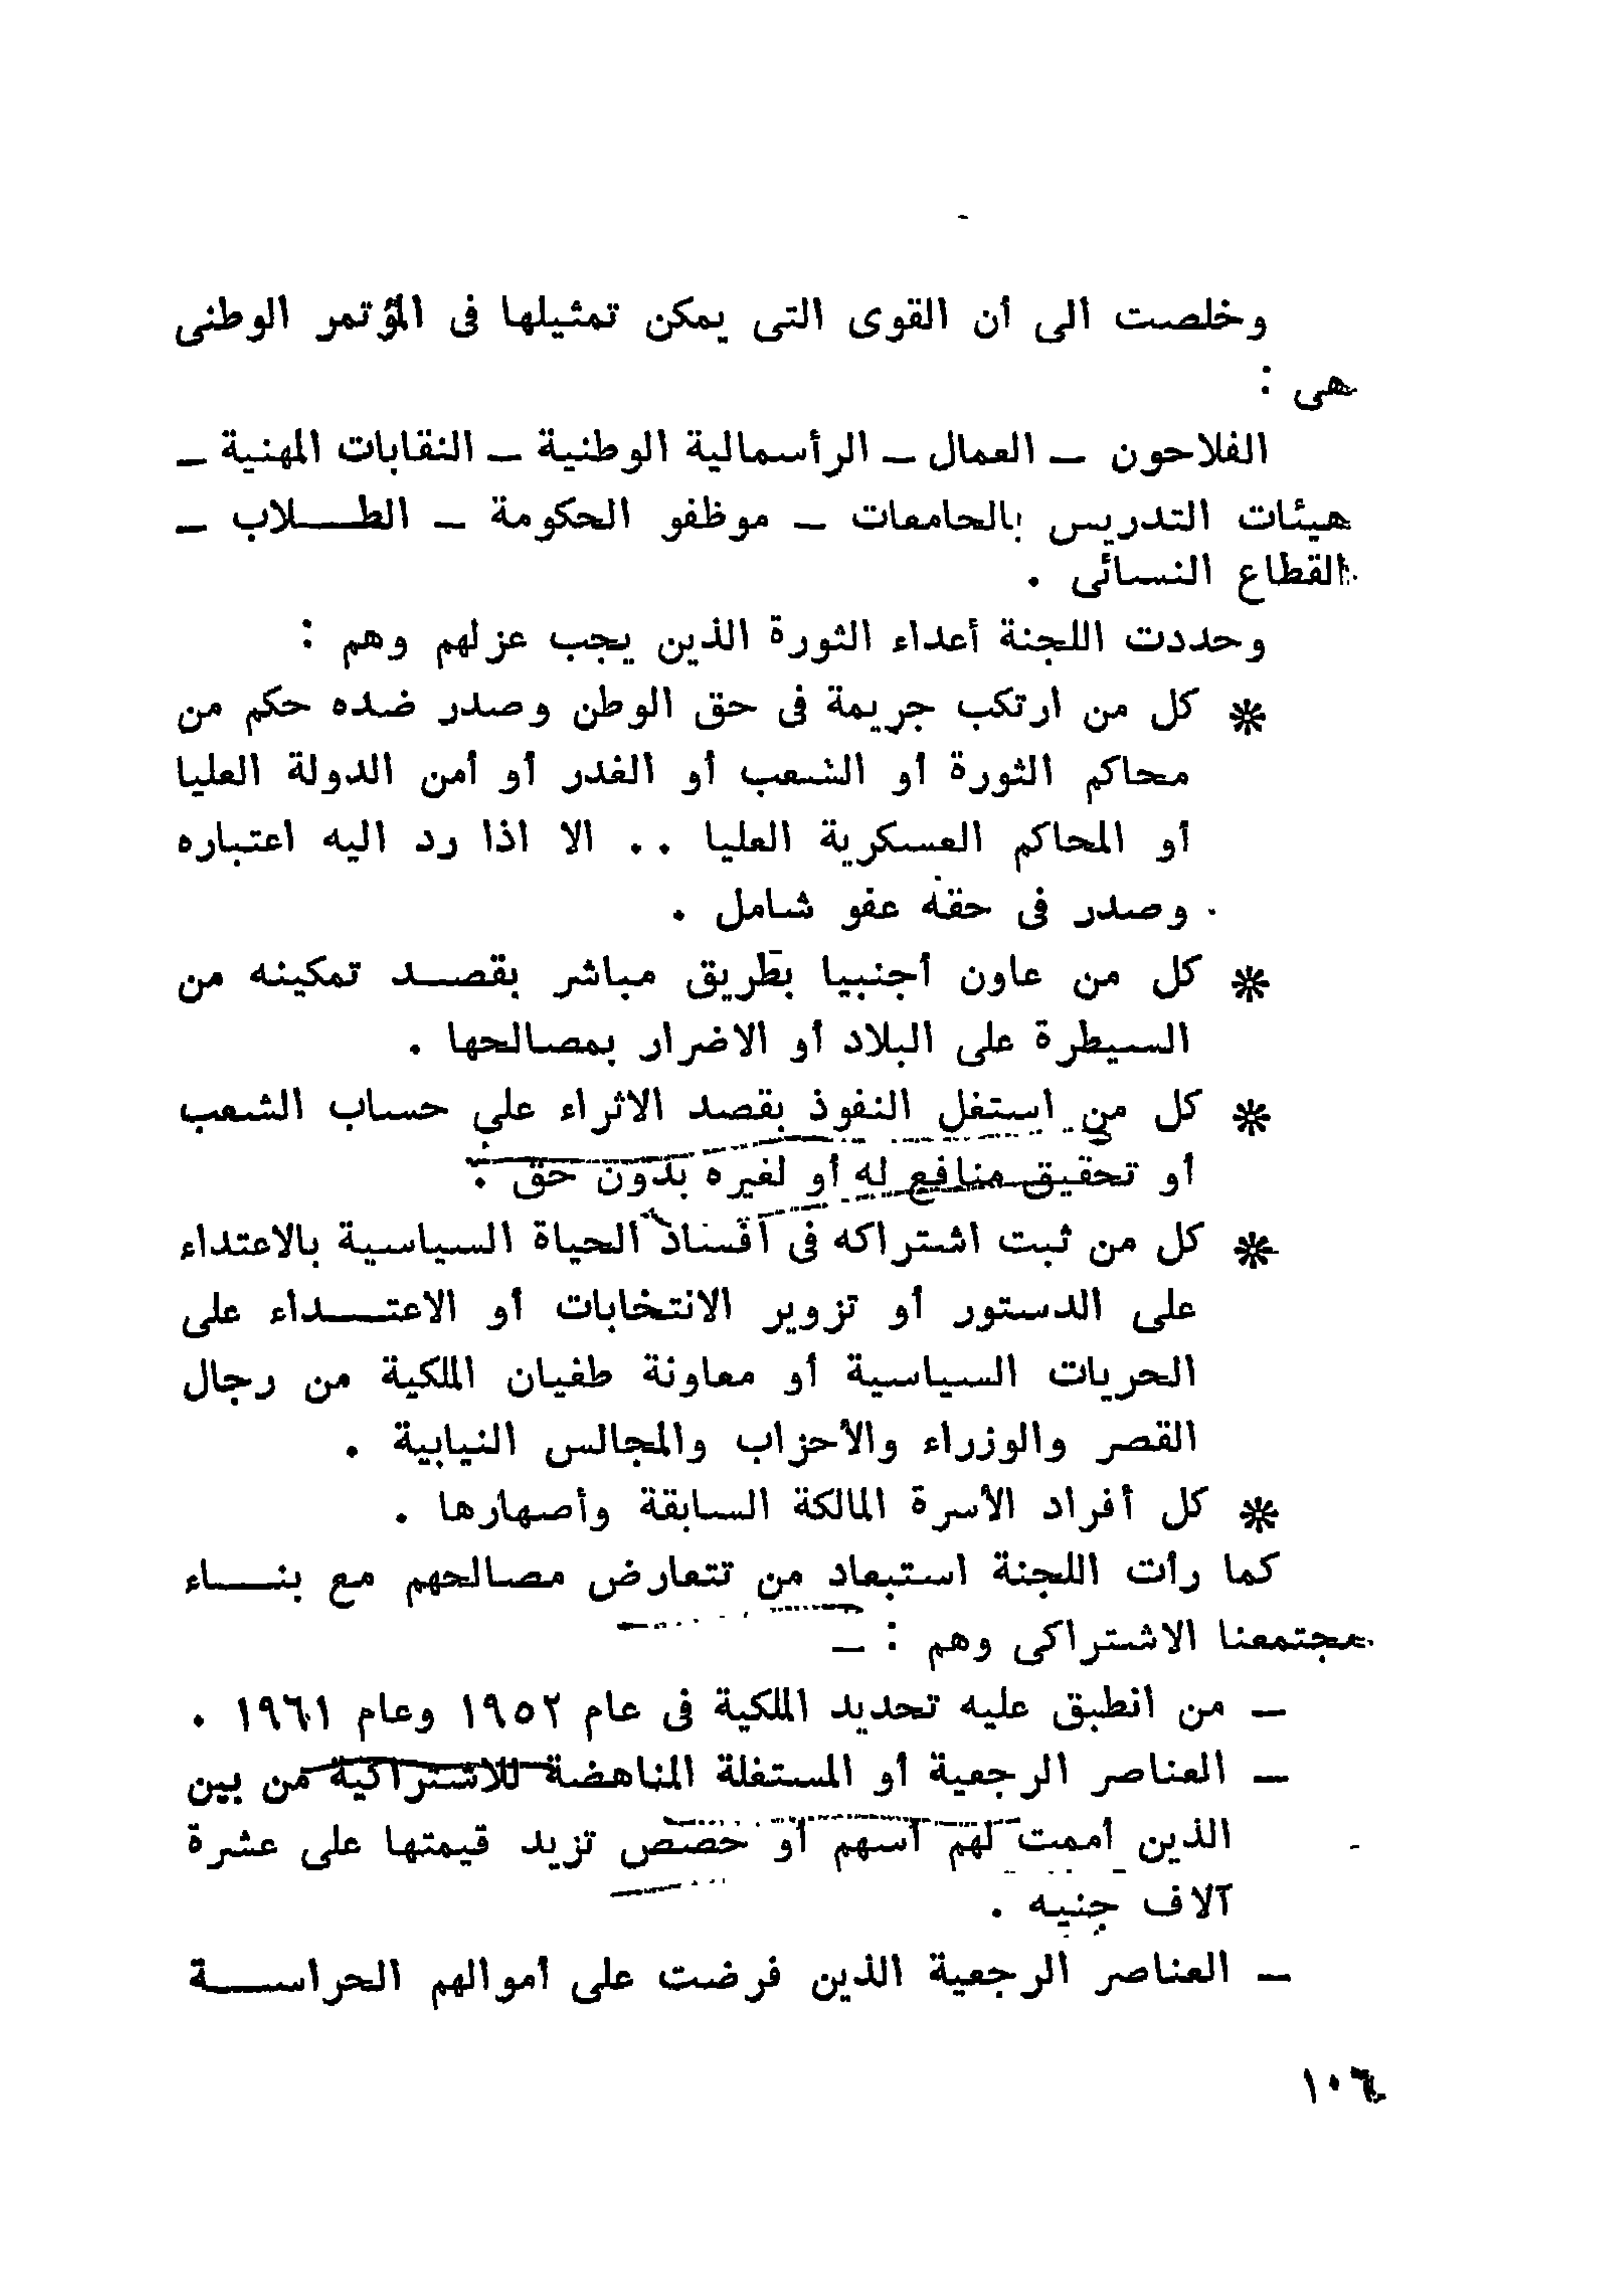 وخلصت الى أن القوى التى يمكن تمثيلها فى المؤتمر الوطنى
هى :
الفلاحون ــ العمال ــ الرأسمالية الوطنية ــ النقابات المهنية ــ
هيئات التدريس بالجامعات ــ موظفو الحكومة ــ الطــلاب ــ
القطاع النسائى .
وحددت اللجنة أعداء الثورة الذين يجب عزلهم وهم :
* كل من ارتكب جريمة فى حق الوطن وصدر ضده حكم من
محاكم الثورة أو الشعب أو الغدر أو أمن الدولة العليا
أو المحاكم العسكرية العليا .. الا اذا رد اليه اعتباره
وصدر فى حقه عفو شامل .
* كل من عاون أجنبيا بطريق مباشر بقصــد تمكينه من
السيطرة على البلاد أو الاضرار بمصالحها .
* كل من استغل النفوذ بقصد الاثراء على حساب الشعب
أو تحقيق منافع له أو لغيره بدون حق .
* كل من ثبت اشتراكه فى افساد الحياة السياسية بالاعتداء
على الدستور أو تزوير الانتخابات أو الاعتــداء على
الحريات السياسية أو معاونة طغيان الملكية من رجال
القصر والوزراء والأحزاب والمجالس النيابية .
* كل أفراد الأسرة المالكة السابقة وأصهارها .
كما رأت اللجنة استبعاد من تتعارض مصالحهم مع بنــاء
مجتمعنا الاشتراكى وهم : ــ
ــ من انطبق عليه تحديد الملكية فى عام ١٩٥٢ وعام ١٩٦١ .
ــ العناصر الرجعية أو المستغلة المناهضة للاشتراكية من بين
الذين أممت لهم أسهم أو حصص تزيد قيمتها على عشرة
آلاف جنيه .
ــ العناصر الرجعية الذين فرضت على أموالهم الحراســة
١٠٦